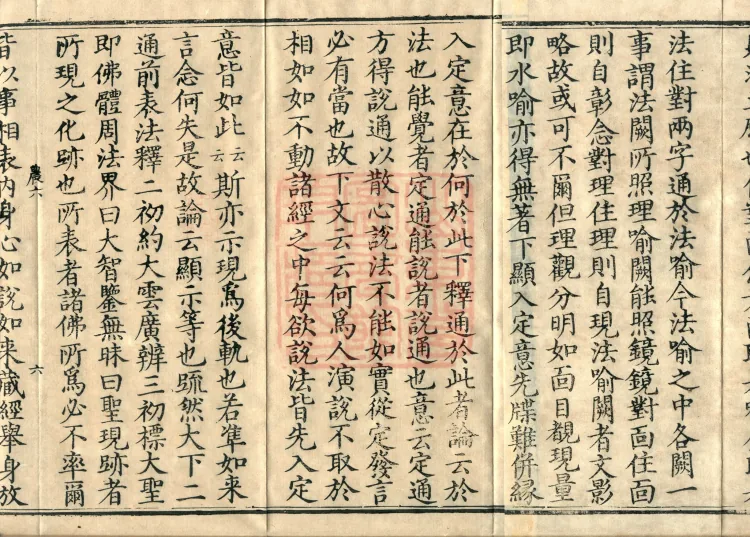 法住對兩字通於法喻今法喻之中各闕一
事謂法闕所照理喻闕能照鏡鏡對面住面
則自彰念對理住理則自現法喻闕者文影
略故或可不爾但理觀分明如面目覩現量
即水喻亦得無著下顯入定意先牒難併緣
入定意在於何於此下釋通於此者論云於
法也能覺者定通能說者說通也意云定通
方得說通以散心說法不能如實從定發言
必有當也故下文云云何爲人演說不取於
相如如不動諸經之中每欲說法皆先入定
意皆如此云云斯亦示現爲後軌也若準如來
言念何失是故論云顯示等也䟽然大下二
通前表法釋二初約大雲廣辨三初標大聖
即佛體周法界曰大智鑒無昧曰聖現跡者
所現之化跡也所表者諸佛所爲必不率爾
農六 六
皆以事相表內身心如說如來藏經舉身放